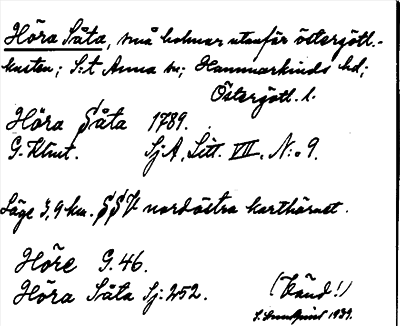 Höra Såta, små holmar utanför östergötl.-
kusten; S:t Anna sn; Hammarkinds hd;
Östergötl. l.
Höra Såta 1789.
G. Ktnt. SjA, Litt. VII, N:o 9.
Läge 3,9 km. SSV nordöstra karthörnet.
Höre G. 46.
Höra Såta Sj: 252.
(Vänd!)
1939.